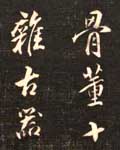 骨董十
雜古器